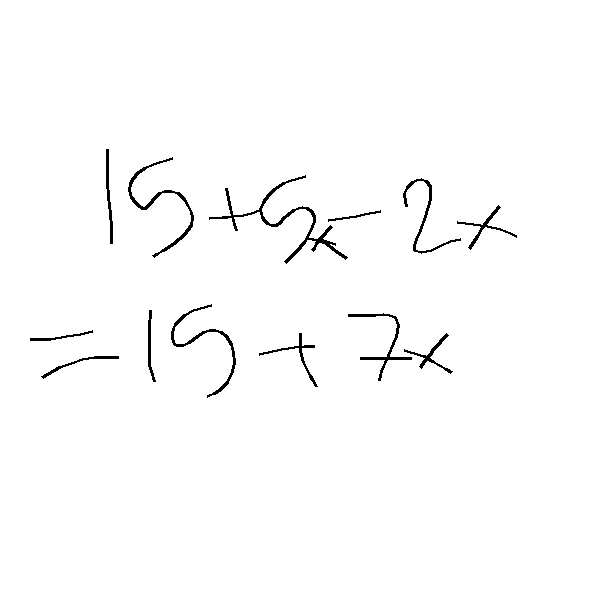 15+5x-2x
=15+7x